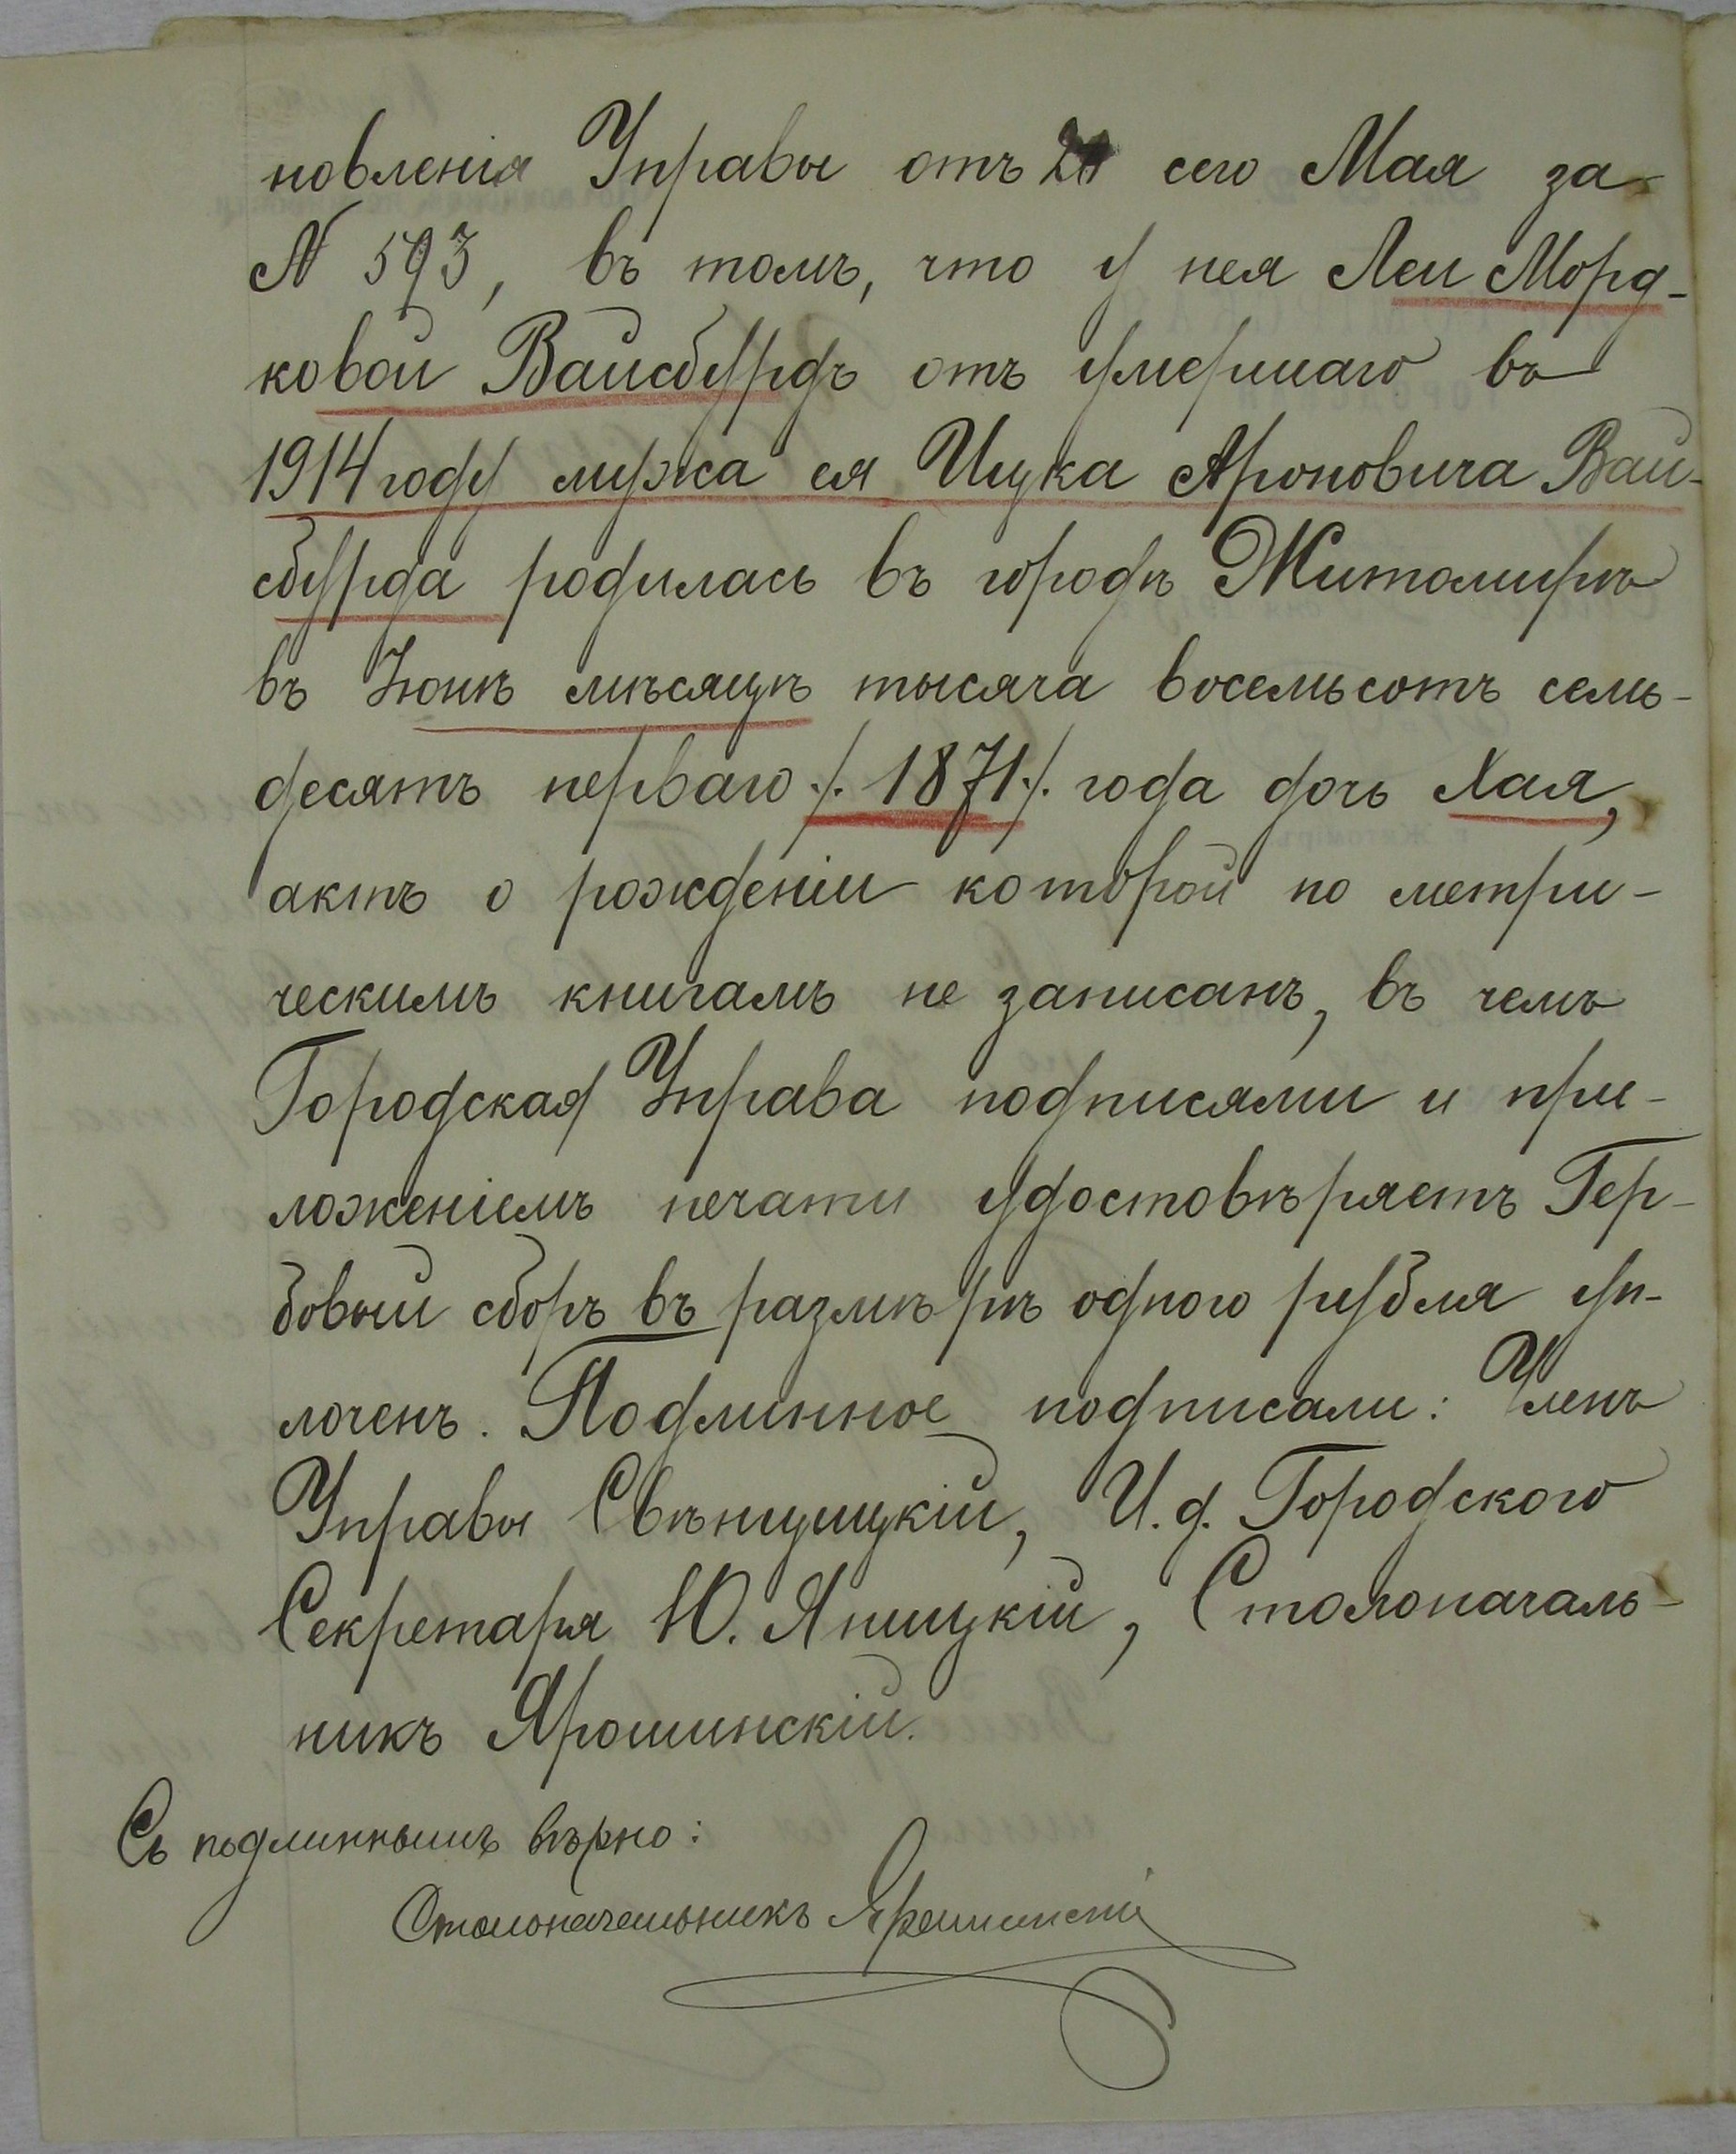 новленія Управы отъ 21 сего Мая за
№ 593, въ томъ, что у нея Леи Морд-
ковой Вайсбурдъ отъ умершаго въ
1914 году мужа ея Ицка Ароновича Вай-
сбурда родилась въ городѣ Житомирѣ
въ Іюнѣ мѣсяцѣ тысяча восемьсотъ семь-
десятъ перваго ./. 1871 ./. года дочь Хая,
актъ о рожденіи которой по метри-
ческимъ книгамъ не записанъ, въ чемъ
Городская Управа подписями и при-
ложеніемъ печати удостовѣряетъ Гер-
бовый сборъ въ размѣрѣ одного рубля уп-
лоченъ. Подлинное подписали: Членъ
Управы Свѣнцицкій, И.д. Городского
Секретаря Ю. Яницкій, Столоначаль-
никъ Ярошинскій.
Съ подлиннымъ вѣрно:
Столоначальникъ Ярошинскій